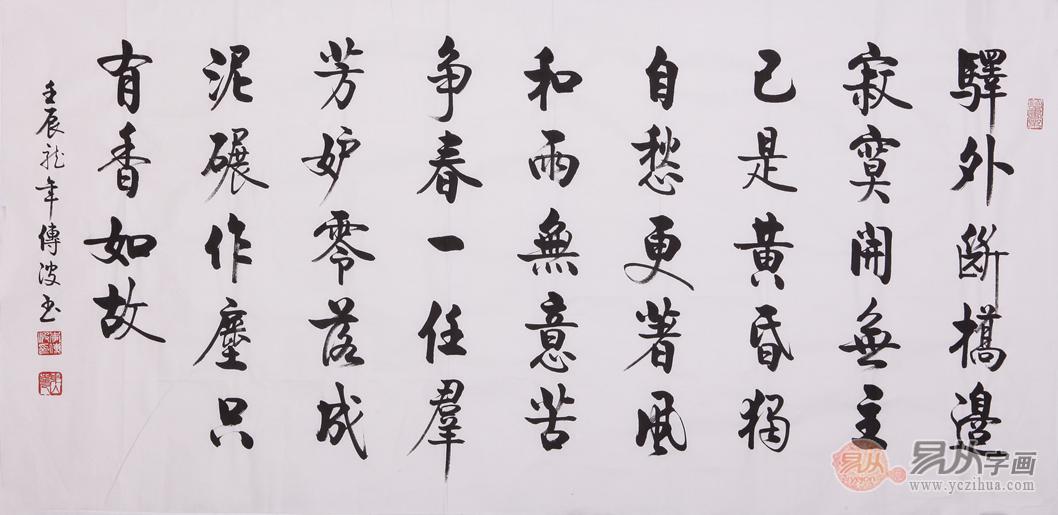 驛外斷橋邊
寂寞開無主
已是黃昏獨
自愁更著風
和雨無意苦
争春一任羣
芳妒零落成
泥碾作塵只
有香如故
壬辰龙年傳波书
易从
易从字画
www.yczihua.com